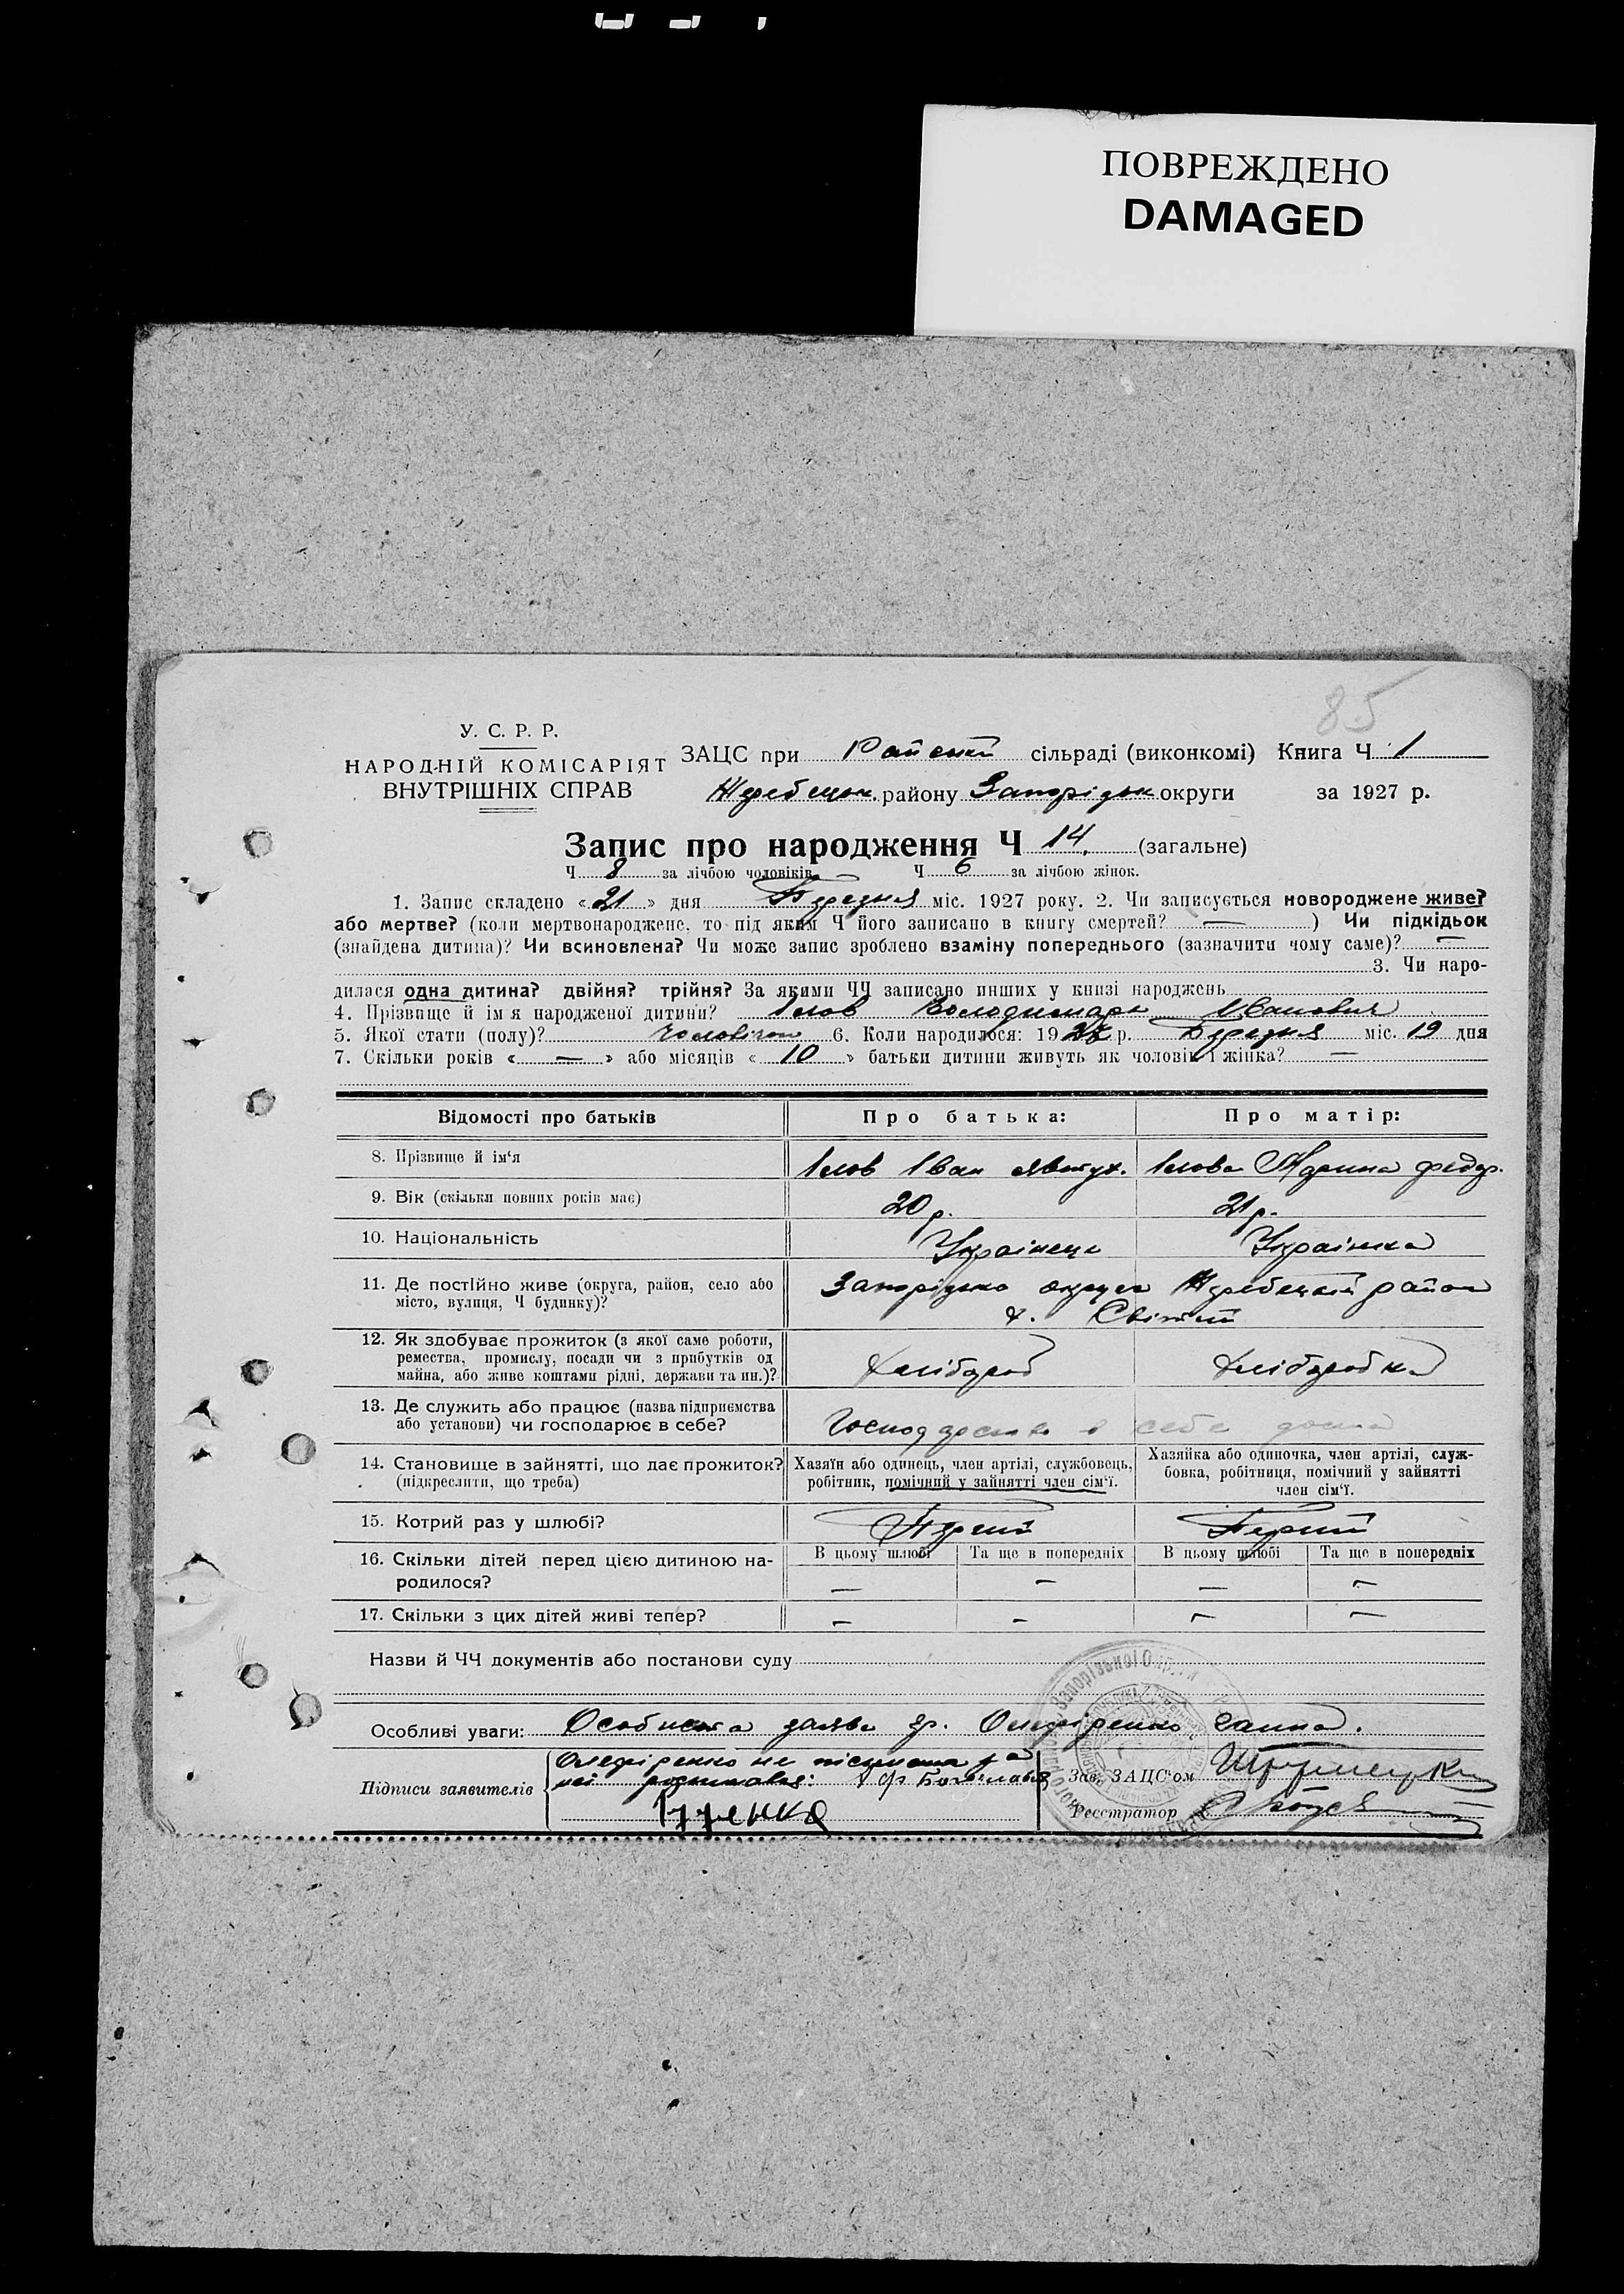 ПОВРЕЖДЕНО
DAMAGED
85
У. С. Р. Р.
НАРОДНІЙ КОМІСАРІЯТ
ВНУТРІШНІХ СПРАВ
ЗАЦС при сільраді (виконкомі) Книга Ч 1
Жеребецьк. району Запорізьк округи за 1927 р.
Запис про народження Ч 14. (загальне)
Ч 8 за лічбою чоловіків Ч 6 за лічбою жінок.
1. Запис складено «21» дня Березня міс. 1927 року. 2. Чи записується новороджене живе?
або мертве? (коли мертвонароджене, то під яким Ч його записано в книгу смертей? — ) Чи підкідьок
(знайдена дитина)? Чи всиновлена? Чи може запис зроблено взаміну попереднього (зазначити чому саме)? —
3. Чи наро-
дилася одна дитина? двійня? трійня? За якими ЧЧ записано инших у книзі народжень
4. Прізвище й ім'я народженої дитини? Володимарь Иванович
5. Якої стати (полу)? 6. Коли народилося: 1927 р. Березня міс. 19 дня
7. Скільки років « — » або місяців « 10 » батьки дитини живуть як чоловік і жінка? —
Відомості про батьків Про батька: Про матір:
8. Прізвище й ім'я Іван
9. Вік (скільки повних років має) 20 р. 21 р.
10. Національність Українець Українка
11. Де постійно живе (округа, район, село або Запорізька округа Жеребецький район
місто, вулиця, Ч будинку)? х.
12. Як здобуває прожиток (з якої саме роботи,
ремества, промислу, посади чи з прибутків од Хлібороб Хліборобка
майна, або живе коштами рідні, держави та ин.)?
13. Де служить або працює (назва підприємства
або установи) чи господарює в себе? в себе дома
14. Становище в зайнятті, що дає прожиток? Хазяїн або одинець, член артілі, службовець, Хазяйка або одиночка, член артілі, служ-
(підкреслити, що треба) робітник, помічний у зайнятті член сім'ї. бовка, робітниця, помічний у зайнятті
член сім'ї.
15. Котрий раз у шлюбі? Перший Перший
16. Скільки дітей перед цією дитиною на- В цьому шлюбі Та ще в попередніх В цьому шлюбі Та ще в попередніх
родилося? — — — —
17. Скільки з цих дітей живі тепер? — — — —
Назви й ЧЧ документів або постанови суду
Особливі уваги: Особиста заява гр.
Підписи заявителів не за
неї
Зав. ЗАЦС'ом
Реєстратор